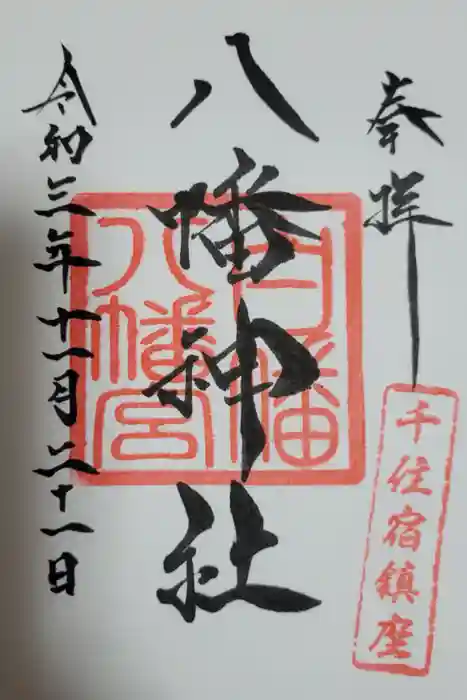 奉拝
千住宿鎮座
八幡神社
白幡
八幡宮
令和三年十一月二十一日